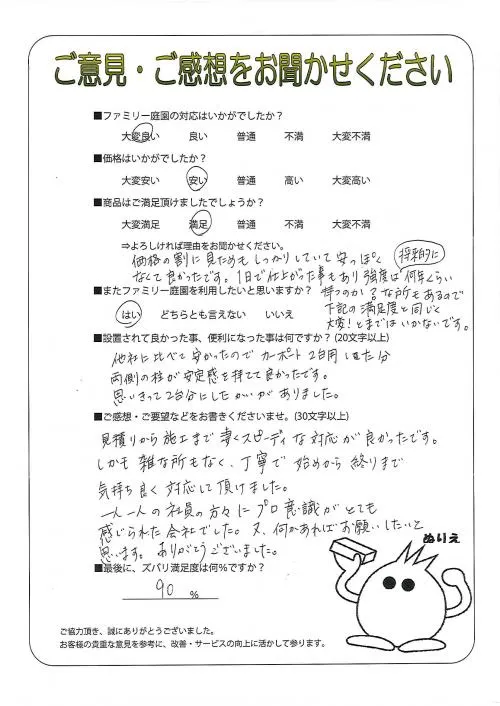 ご意見・ご感想をお聞かせください
■ファミリー庭園の対応はいかがでしたか?
大変良い 良い 普通 不満 大変不満
■価格はいかがでしたか?
大変安い 安い 普通 高い 大変高い
■商品はご満足頂けましたでしょうか?
大変満足 満足 普通 不満 大変不満
⇒よろしければ理由をお聞かせください。
価格の割に見ためもしっかりしていて安っぽく
なくて良かったです。1日で仕上がった事もあり強度は将来的に何年くらい
持つのか?な所もあるので
下記の満足度と同じく
大変!とまではいかないです。
■またファミリー庭園を利用したいと思いますか?
はい どちらとも言えない いいえ
■設置されて良かった事、便利になった事は何ですか?(20文字以上)
他社に比べと安かったのでカーポート2台用にした分
両側の柱が安定感を持てて良かったです。
思いきって2台分にしたかいがありました。
■ご感想・ご要望などをお書きくださいませ。(30文字以上)
見積りから施工まで凄くスピーディな対応が良かったです。
しかも雑な所もなく、丁寧で始めから終りまで
気持ち良く対応して頂けました。
一人一人の社員の方々にプロ意識がとても
感じられた会社でした。又、何かあればお願いしたいと
思います。ありがとうございました。
■最後に、ズバリ満足度は何%ですか?
90 %
ぬりえ
ご協力頂き、誠にありがとうございました。
お客様の貴重な意見を参考に、改善・サービスの向上に活かして参ります。